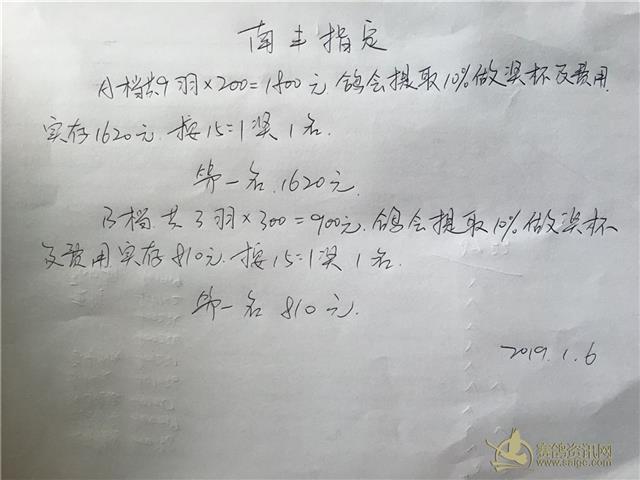 南丰指定
A档共9羽×200=1800元 鸽会提取10%做奖杯及费用.
实存1620元. 按15=1奖1名.
第一名.1620元.
B档.共3羽×300=900元.鸽会提取10%做奖杯
及费用实存810元.按15=1奖1名.
第一名 810元.
2019.1.6
赛鸽资讯网
www.saige.com